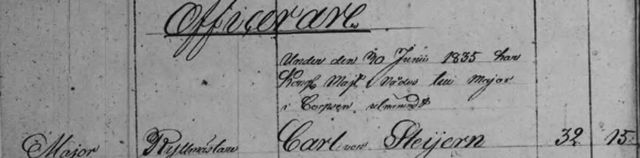 Officerare
Under den 30 Junii 1835 har
Kongl Majt i Nåder till Major
i Corpsen utnämnt
Major Ryttmästare Carl von Steijern 32 15